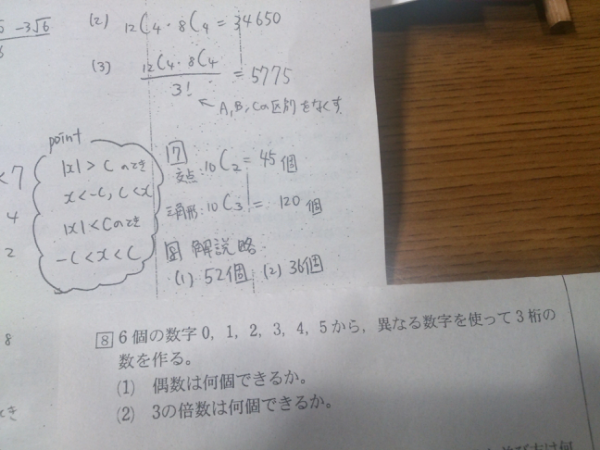 -3√6
(2) ₁₂C₄・₈C₄ = 34650
(3) ₁₂C₄・₈C₄ / 3! = 5775
A, B, Cの区別をなくす.
point
|x| > Cのとき
x < -C, C < x
|x| < Cのとき
-C < x < C
< 7
4
2
8
[7]
交点: ₁₀C₂ = 45個
三角形: ₁₀C₃ = 120個
[8] 解説略.
(1) 52個 (2) 36個
[8] 6個の数字0, 1, 2, 3, 4, 5から, 異なる数字を使って3桁の
数を作る。
(1) 偶数は何個できるか。
(2) 3の倍数は何個できるか。